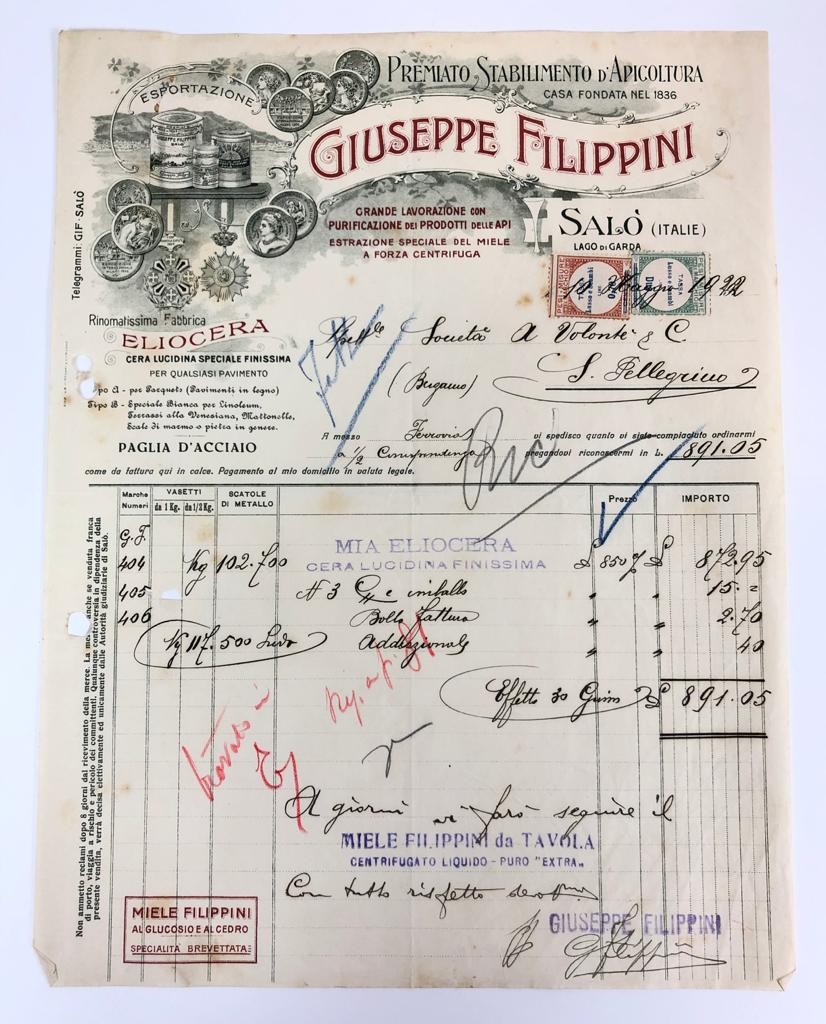 PREMIATO STABILIMENTO D'APICOLTURA
CASA FONDATA NEL 1836
ESPORTAZIONE
GIUSEPPE FILIPPINI
GRANDE LAVORAZIONE CON
PURIFICAZIONE DEI PRODOTTI DELLE API
ESTRAZIONE SPECIALE DEL MIELE
A FORZA CENTRIFUGA
SALÒ (ITALIE)
LAGO DI GARDA
Telegrammi: GIF-SALÒ
Maggio 1922
Rinomatissima Fabbrica
ELIOCERA
CERA LUCIDINA SPECIALE FINISSIMA
PER QUALSIASI PAVIMENTO
Tipo A - per Parquets (Pavimenti in legno)
Tipo B - Speciale Bianca per Linoleum,
Terrazzi alla Veneziana, Mattonelle,
Scale di marmo o pietra in genere.
PAGLIA D'ACCIAIO
Spett.le Società A Volontè & C.
(Bergamo) S. Pellegrino
A mezzo Ferrovia vi spedisco quanto vi siete compiaciuto ordinarmi
a 1/2 Corrispondenza pregandovi riconoscermi in L. 891.05
come da fattura qui in calce. Pagamento al mio domicilio in valuta legale.
Marche Numeri VASETTI da 1 Kg. da 1/2 Kg. SCATOLE DI METALLO Prezzo IMPORTO
G.F.
MIA ELIOCERA
CERA LUCIDINA FINISSIMA
404 Kg 102.700 £ 850 % £ 872.95
405 N 3 e imballo " " 15.=
406 Bollo fattura " " 2.70
Kg 117.500 Lordo Addizionale " " 40
Effetto 30 Giugno £ 891.05
A giorni vi farò seguire il
MIELE FILIPPINI da TAVOLA
CENTRIFUGATO LIQUIDO - PURO "EXTRA"
Con tutto rispetto
GIUSEPPE FILIPPINI
GFilippini
MIELE FILIPPINI
AL GLUCOSIO E AL CEDRO
SPECIALITÀ BREVETTATA
Non ammetto reclami dopo 8 giorni dal ricevimento della merce. La merce anche se venduta franca
di porto, viaggia a rischio e pericolo dei committenti. Qualunque controversia in dipendenza della
presente vendita, verrà decisa elettivamente ed unicamente dalle Autorità giudiziarie di Salò.